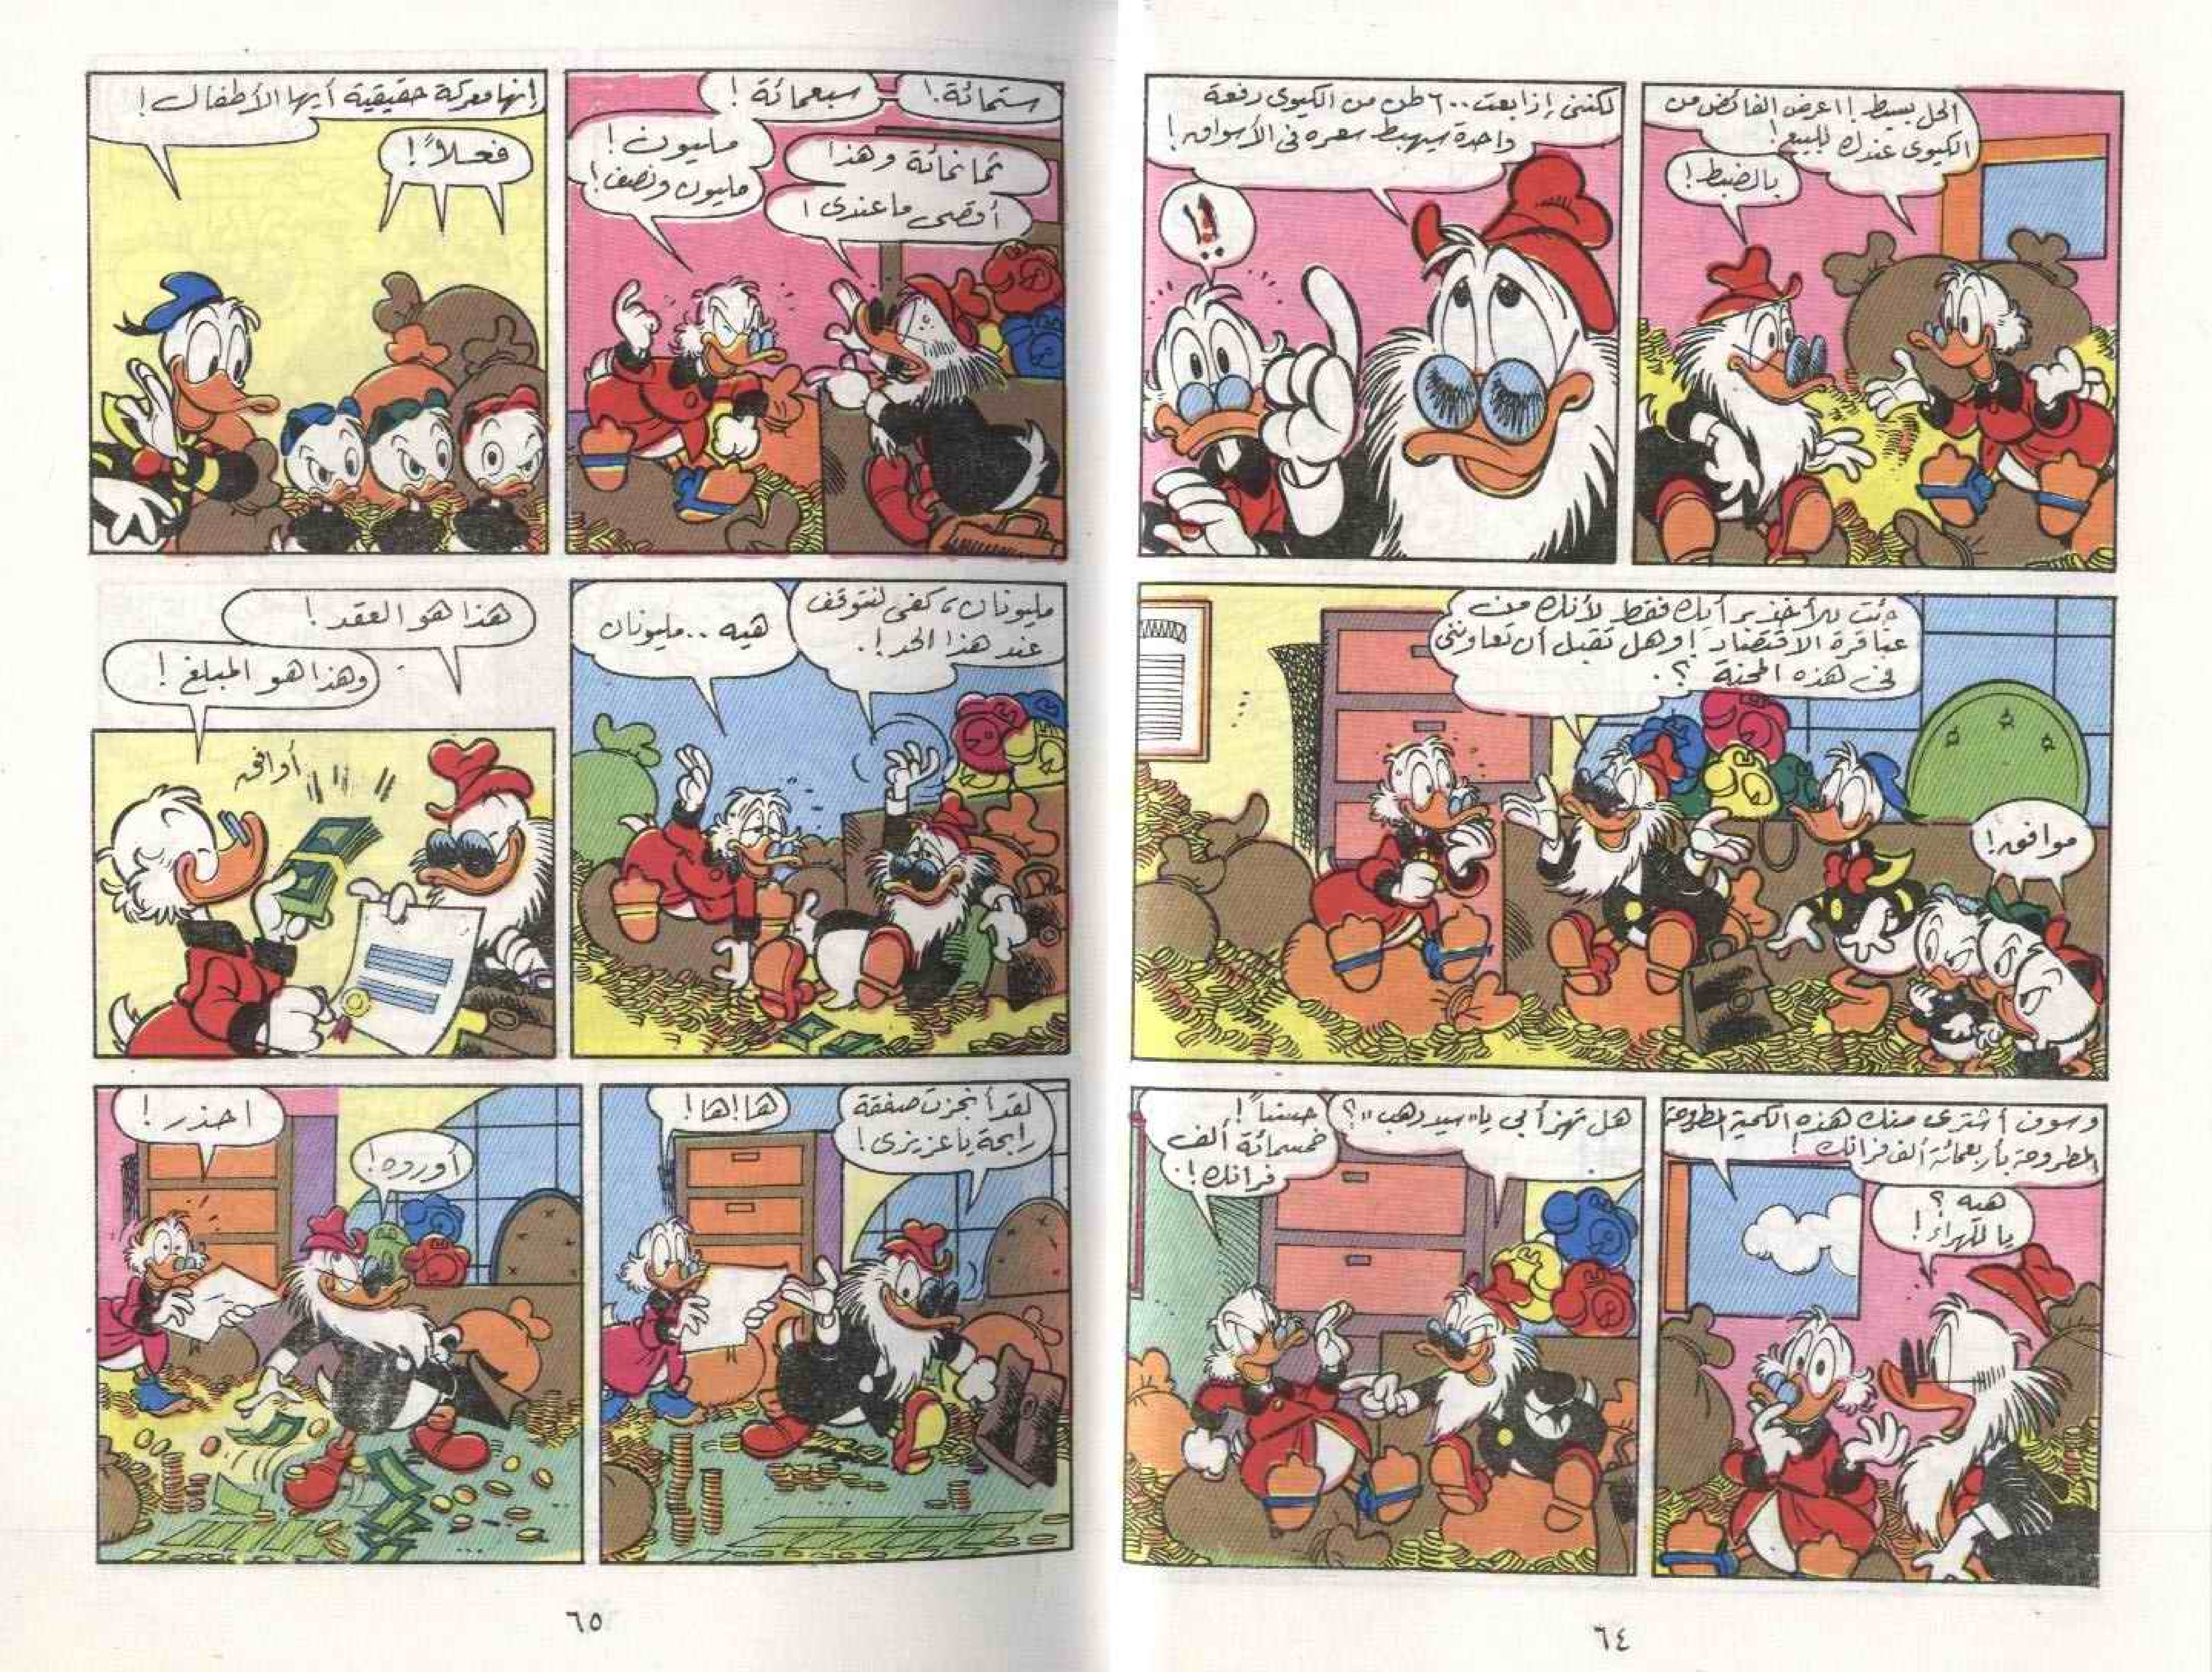 الحل بسيط! اعرض الفائض من
الكيوى عندك للبيع!
بالضبط!
لكننى إذا بعت ٦٠٠ طن من الكيوى دفعة
واحدة سيهبط سعره فى الأسواق!
!!
جئت لآخذ برأيك فقط لأنك من
عباقرة الاقتصاد! وهل تقبل أن تعاوننى
فى هذه المحنة ؟.
موافق!
وسوف أشترى منك هذه الكمية المطروحة
المطروحة بأربعمائة ألف فرانك!
هيه ؟
يا للهراء!
هل تهزأ بى يا "سيد دهب"؟
حسناً!
خمسمائة ألف
فرانك!.
ستمائة.!
سبعمائة!
ثمانمائة وهذا
أقصى ما عندى!
مليون!
مليون ونصف!
إنها معركة حقيقية أيها الأطفال!
فعلاً!
مليونان، كفى لنتوقف
عند هذا الحد!.
هيه .. مليونان
هذا هو العقد!
وهذا هو المبلغ!
أوافق
لقد أنجزت صفقة
رابحة يا عزيزى!
ها!ها!
احذر!
أوروه!
٦٥
٦٤